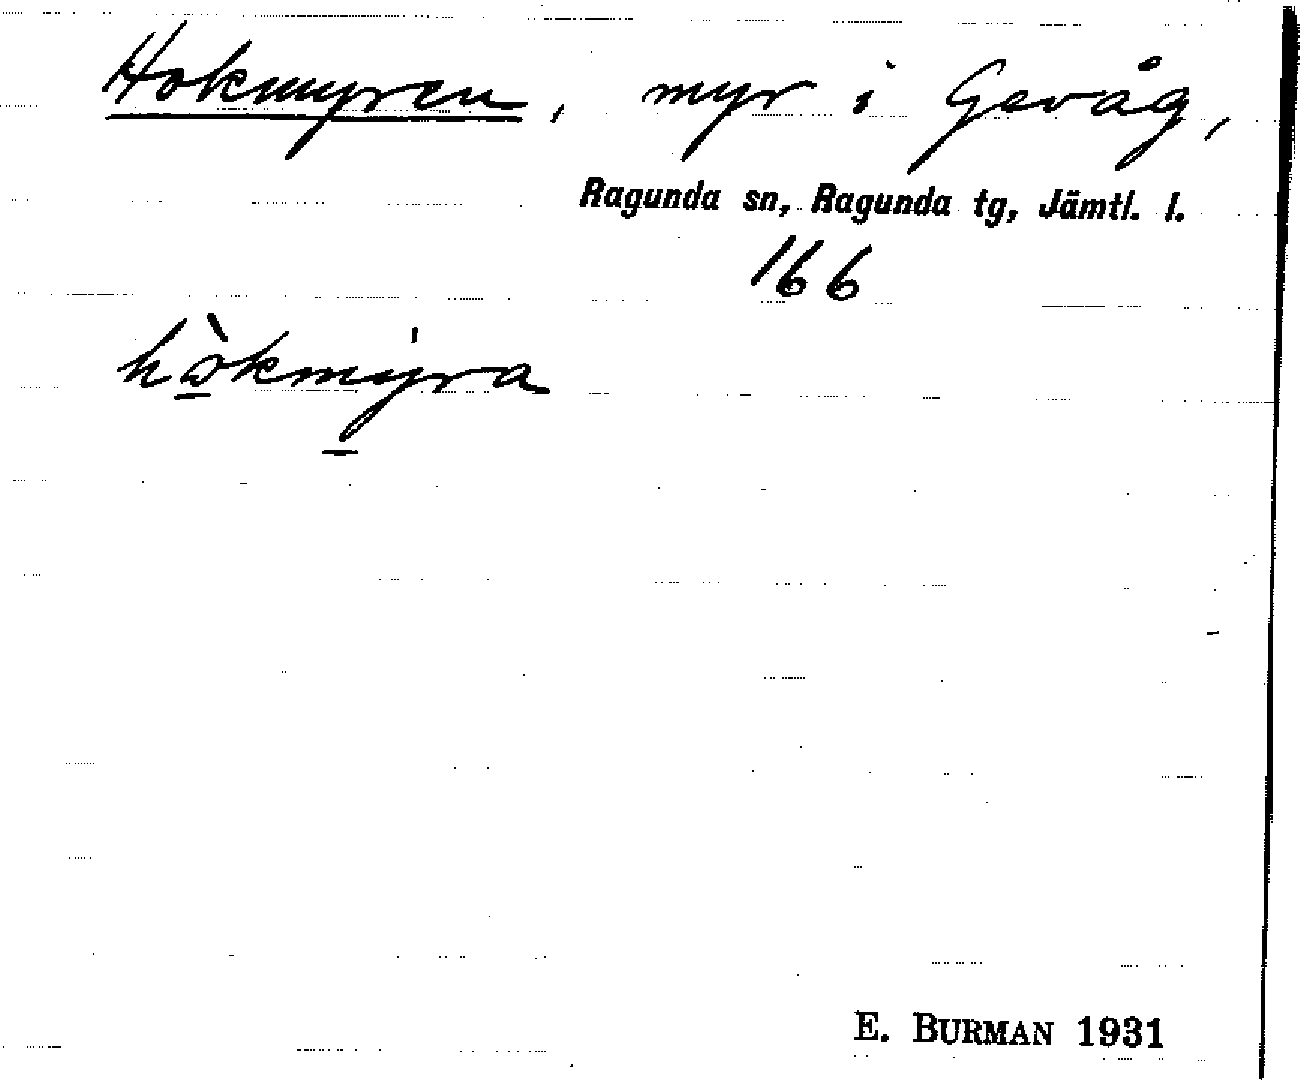 Hokmyren, myr i Gevåg,
Ragunda sn, Ragunda tg, Jämtl. l.
166
hòkmýra
E. BURMAN 1931